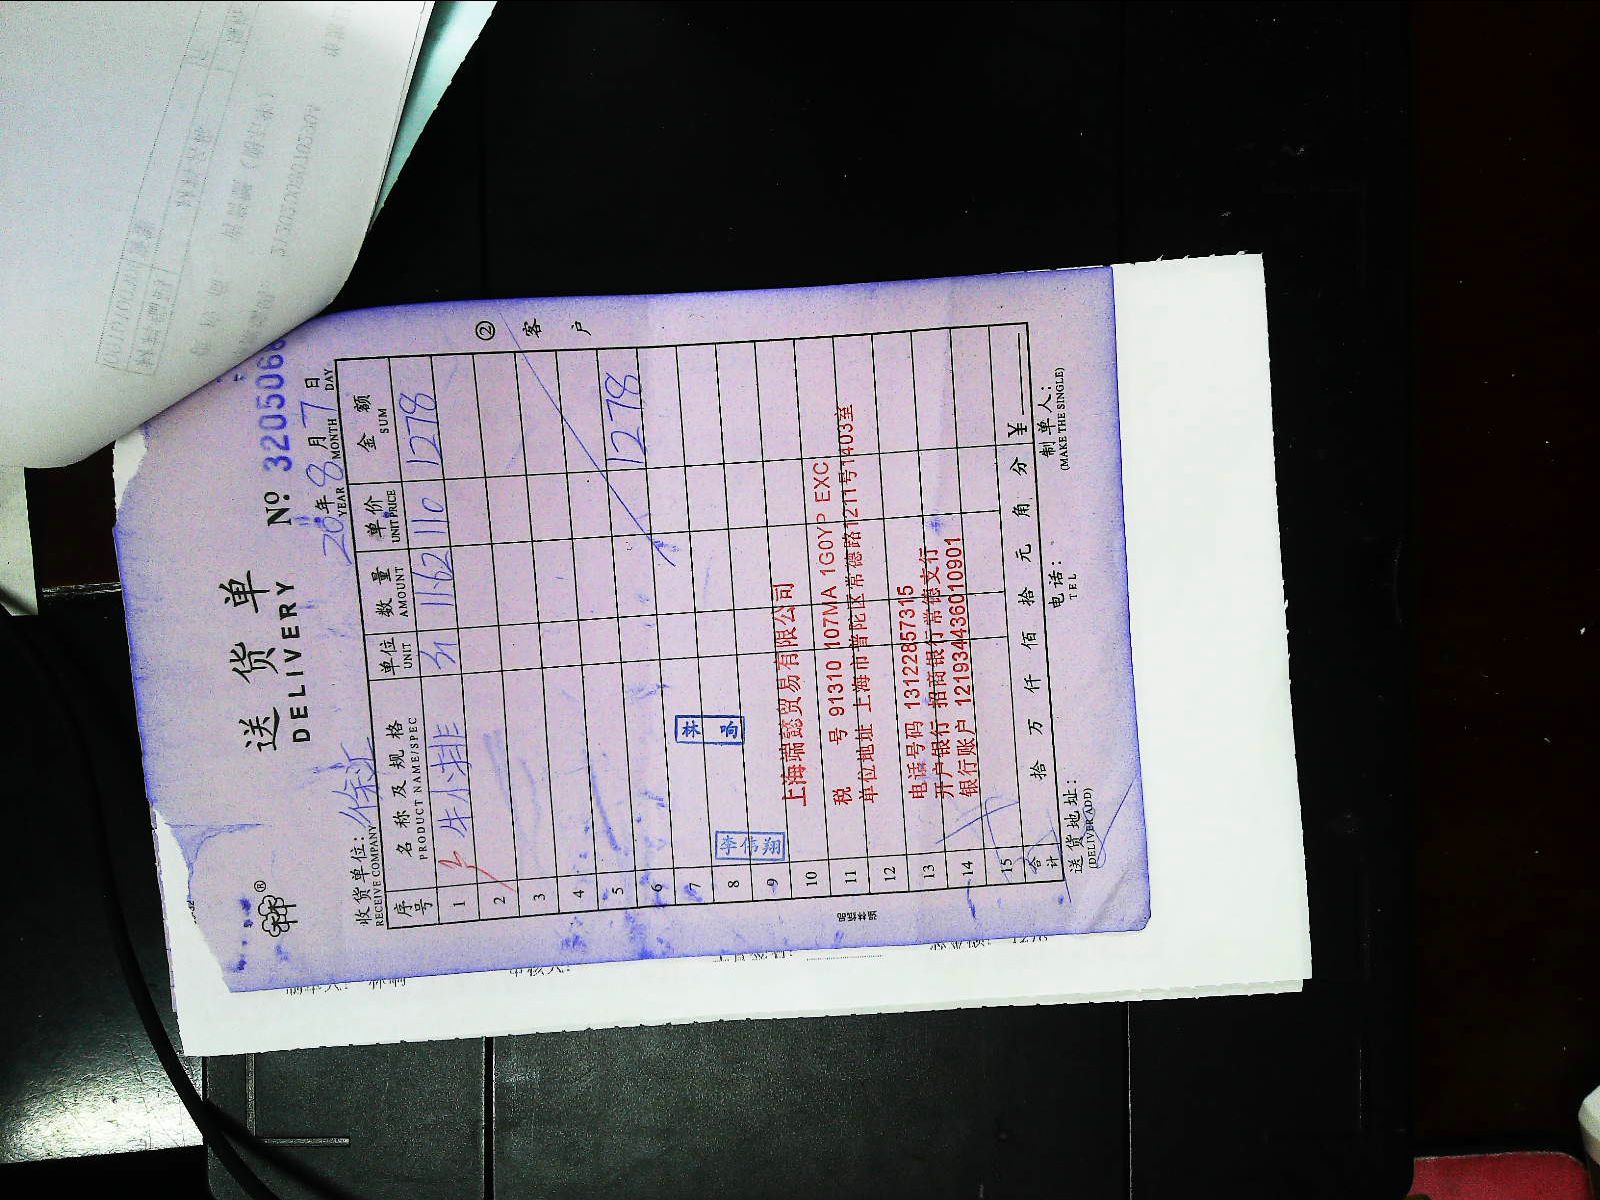 送货单
DELIVERY
№ 3205066
20年8月7日
YEAR MONTH DAY
收货单位：
RECEIVE COMPANY
序号 名称及规格 单位 数量 单价 金额
PRODUCT NAME/SPEC UNIT AMOUNT UNIT PRICE SUM
1 牛排 11.62 110 1278
2
3
4
5 1278
6
7
林响
8
李伟翔
9
10
11
12
13
14
15
上海端懿贸易有限公司
税 号 91310 107MA 1G0YP EXC
单位地址 上海市普陀区常德路1211号1403室
电话号码 13122857315
开户银行 招商银行常德支行
银行账户 121934436010901
合计 拾 万 仟 佰 拾 元 角 分 ¥
送货地址： 电话： 制单人：
(DELIVER ADD) TEL (MAKE THE SINGLE)
②客户